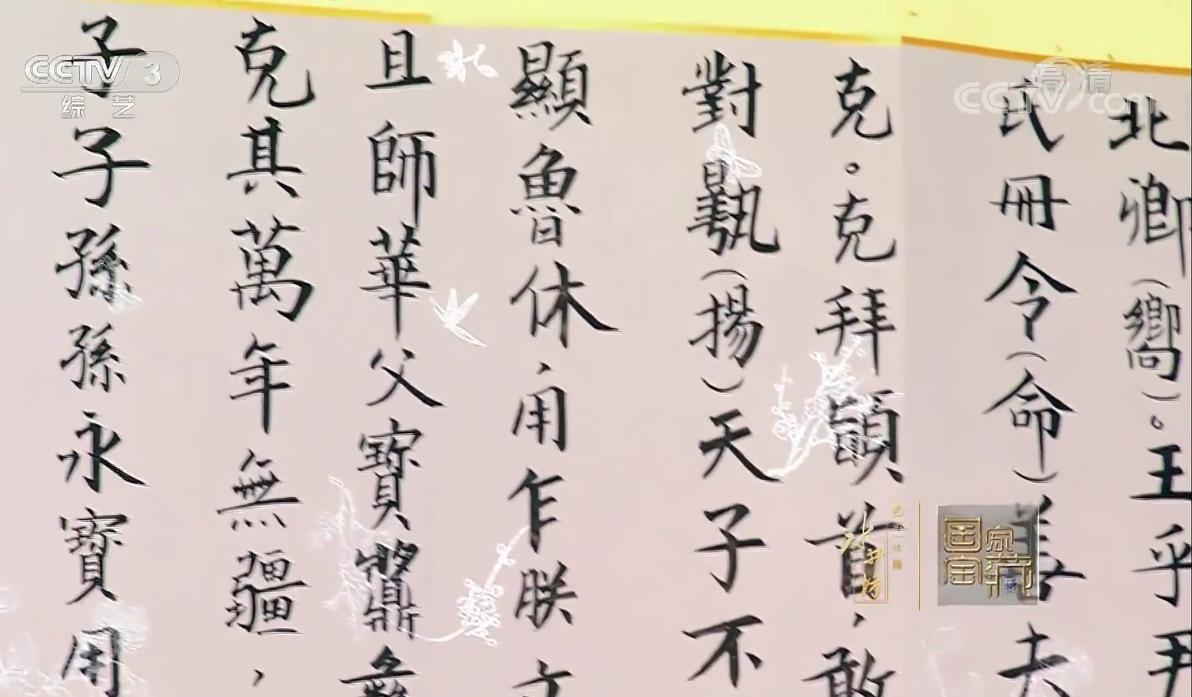 北卿(嚮)。王乎尹
氏冊令(命)善夫
克。克拜䭫首,敢
對𩰫(揚)天子不
顯魯休,用乍朕文
且師華父寶𩰬彝
克其萬年無疆,
子子孫孫永寶用
CCTV 3
综艺
高清
CCTV.com
国家宝藏